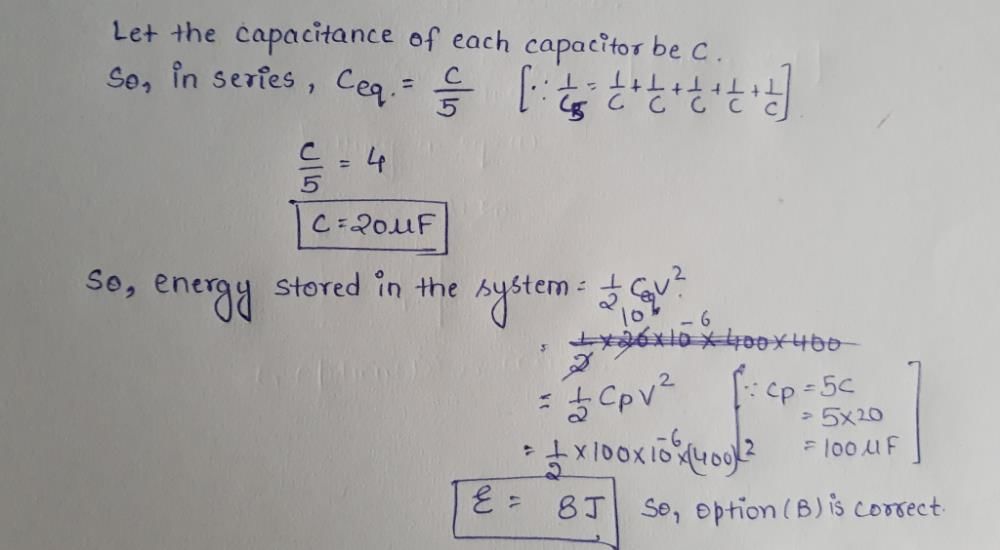 Let the capacitance of each capacitor be C.
So, in series, Ceq. = C/5 [∵ 1/C5 = 1/C + 1/C + 1/C + 1/C + 1/C]
C/5 = 4
C = 20 μF
So, energy stored in the system = 1/2 CeqV².
= 1/2 × 20 × 10⁻⁶ × 400 × 400
10
= 1/2 CpV² [∵ Cp = 5C
= 5×20
= 1/2 × 100 × 10⁻⁶ × (400)² = 100 μF]
E = 8J So, option (B) is correct.